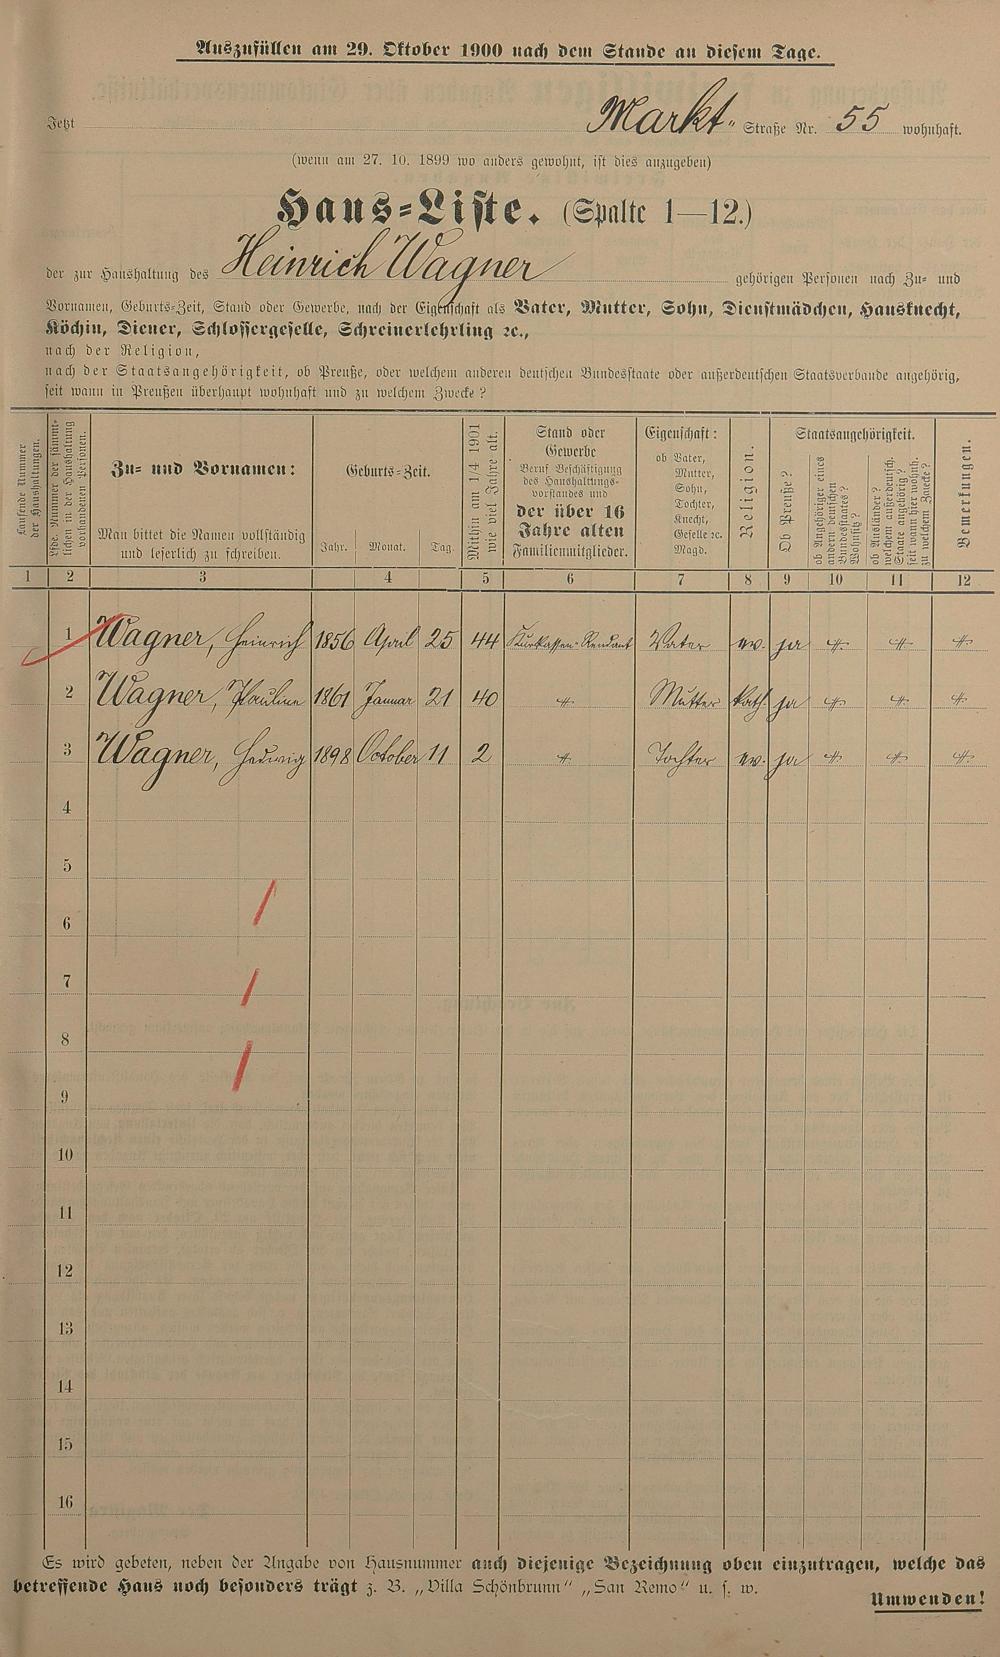 Auszufüllen am 29. Oktober 1900 nach dem Stande an diesem Tage.
Jetzt Markt- Straße Nr. 55 wohnhaft.
(wenn am 27. 10. 1899 wo anders gewohnt, ist dies anzugeben)
Haus-Liste. (Spalte 1—12.)
der zur Haushaltung des Heinrich Wagner gehörigen Personen nach Zu- und
Vornamen, Geburts-Zeit, Stand oder Gewerbe, nach der Eigenschaft als Vater, Mutter, Sohn, Dienstmädchen, Hausknecht,
Köchin, Diener, Schlossergeselle, Schreinerlehrling ꝛc.,
nach der Religion,
nach der Staatsangehörigkeit, ob Preuße, oder welchem anderen deutschen Bundesstaate oder außerdeutschen Staatsverbande angehörig,
seit wann in Preußen überhaupt wohnhaft und zu welchem Zwecke?
Laufende Nummer
der Haushaltungen.
Lfde. Nummer der sämmt-
lichen in der Haushaltung
vorhandenen Personen.
Zu- und Vornamen:
Man bittet die Namen vollständig
und leserlich zu schreiben.
Geburts-Zeit.
Jahr. Monat. Tag.
Mithin am 1/4 1901
wie viel Jahre alt.
Stand oder
Gewerbe
Beruf Beschäftigung
des Haushaltungs-
vorstandes und
der über 16
Jahre alten
Familienmitglieder.
Eigenschaft:
ob Vater,
Mutter,
Sohn,
Tochter,
Knecht,
Geselle ꝛc.
Magd.
Religion.
Staatsangehörigkeit.
Ob Preuße?
ob Angehöriger eines
andern deutschen
Bundesstaates?
Wohnsitz?
ob Ausländer?
welchem außerdeutsch.
Staate angehörig?
seit wann hier wohnh.
zu welchem Zwecke?
Bemerkungen.
1 2 3 4 5 6 7 8 9 10 11 12
1 Wagner, Heinrich 1856 April 25 44 Kurkassen-Rendant Vater ev. ja
2 Wagner, Pauline 1861 Januar 21 40 Mutter kath. ja
3 Wagner, Hedwig 1898 October 11 2 Tochter ev. ja
4
5
6
7
8
9
10
11
12
13
14
15
16
Es wird gebeten, neben der Angabe von Hausnummer auch diejenige Bezeichnung oben einzutragen, welche das
betreffende Haus noch besonders trägt z. B. „Villa Schönbrunn“ „San Remo“ u. s. w.
Umwenden!